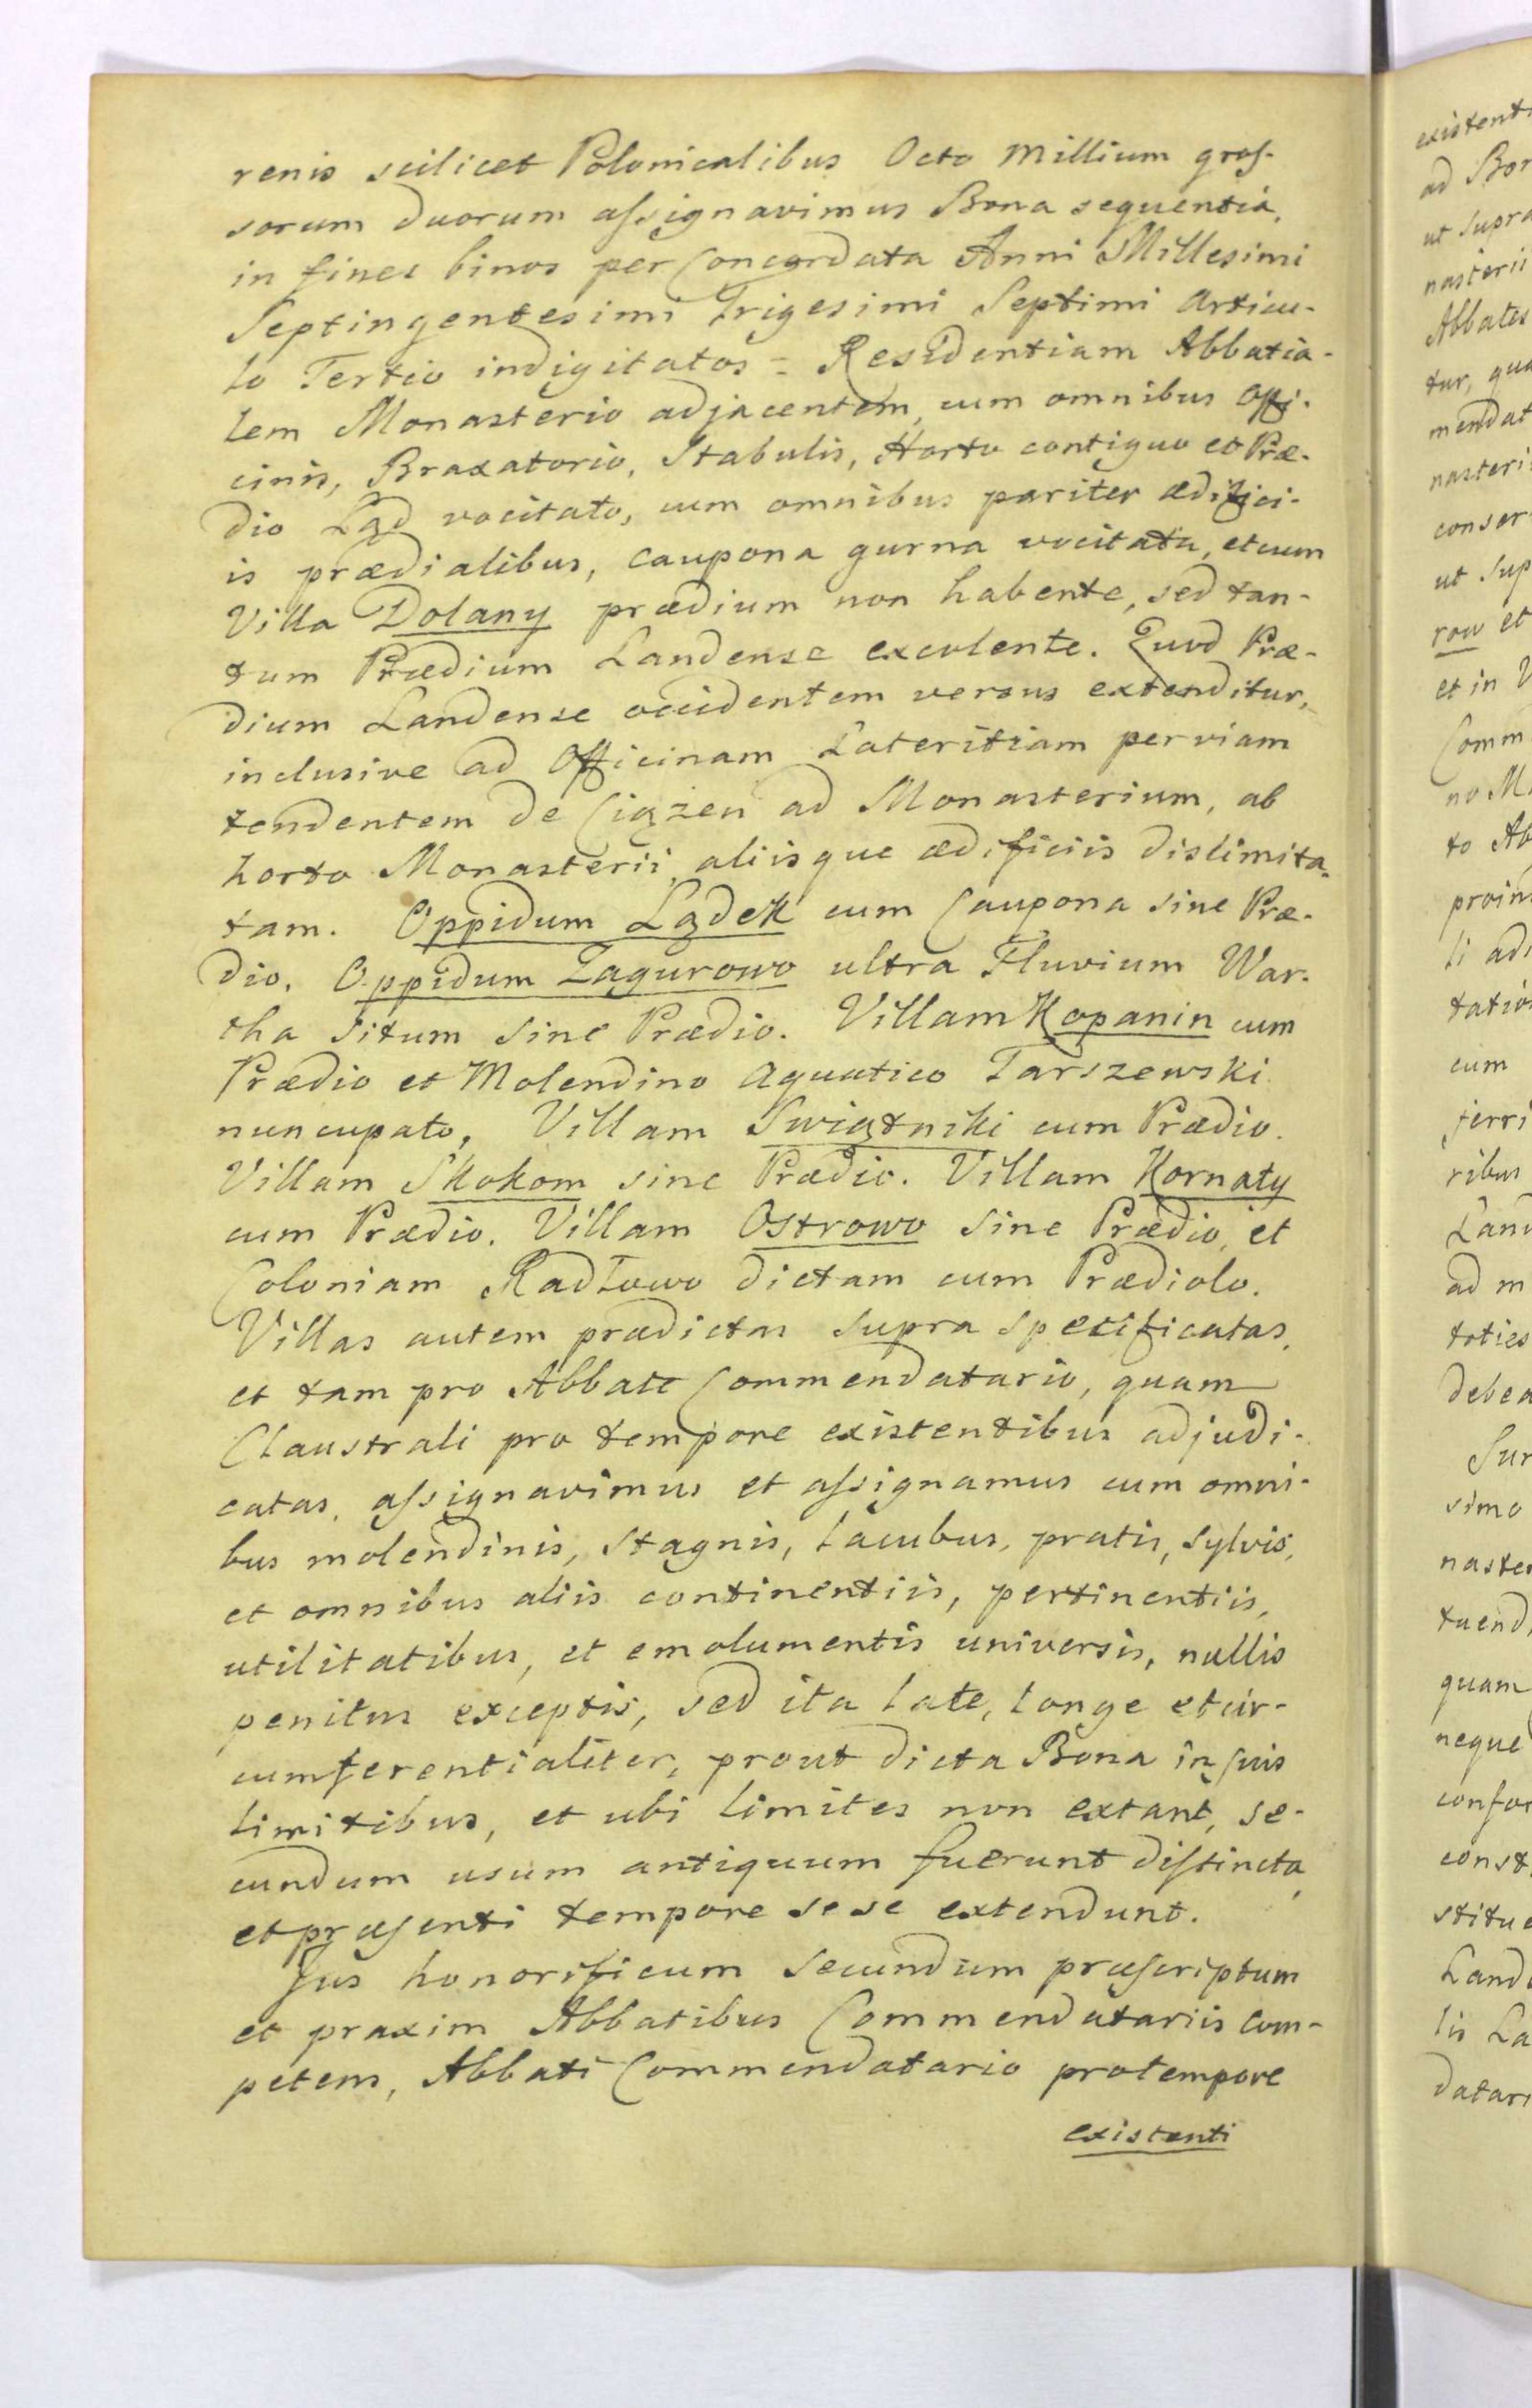 renis scilicet Polonicalibus Octo Millium gros-
sorum duorum assignavimus Bona sequentia,
in fines binos per Concordata Anni Millesimi
Septingentesimi Trigesimi Septimi Articu-
lo Tertio indigitatos = Residentiam Abbatia-
lem Monasterio adjacentem, cum omnibus Offi-
cinis, Braxatorio, Stabulis, Horto contiguo et Præ-
dio Ląd vocitato, cum omnibus pariter ædifici-
is prædialibus, caupona gurna vocitata, et cum
Villa Dolany prædium non habente, sed tan-
tum Prædium Landense excolente. Quod Præ-
dium Landense occidentem versus extenditur,
inclusive ad Officinam Lateritiam per viam
tendentem de Ciązeń ad Monasterium, ab
horto Monasterii, aliisque ædificiis dislimita-
tam. Oppidum Lądek cum Caupona sine Præ-
dio. Oppidum Zagurowo ultra Fluvium War-
tha situm sine Prædio. Villam Kopanin cum
Prædio et Molendino aquatico Tarszewski
nuncupato, Villam Swiątniki cum Prædio.
Villam Skokom sine Prædio. Villam Kornaty
cum Prædio. Villam Ostrowo sine Prædio, et
Coloniam Radłowo dictam cum Prædiolo.
Villas autem prædictas supra specificatas,
et tam pro Abbate Commendatario, quam
Claustrali pro tempore existentibus adjudi-
catas, assignavimus et assignamus cum omni-
bus molendinis, stagnis, lacubus, pratis, sylvis,
et omnibus aliis continentiis, pertinentiis,
utilitatibus, et emolumentis universis, nullis
penitus exceptis, sed ita late, longe et cir-
cumferentialiter, prout dicta Bona in suis
limitibus, et ubi limites non extant, se-
cundum usum antiquum fuerunt distincta,
et præsenti tempore sese extendunt.
Jus honorificum secundum præscriptum
et praxim Abbatibus Commendatariis com-
petens, Abbati Commendatario pro tempore
existenti
existent
ad Bor
ut supra
nasterii
Abbates
tur, qua
mendat
nasteri
conser
ut sup
row et
et in V
Comm
no M
to Ab
proin
li adi
tatio
cum
ferri
ribus
Lan
ad m
toties
debea
Sur
simo
naste
tuend
quam
neque
confor
const
stitue
Land
lis La
datar